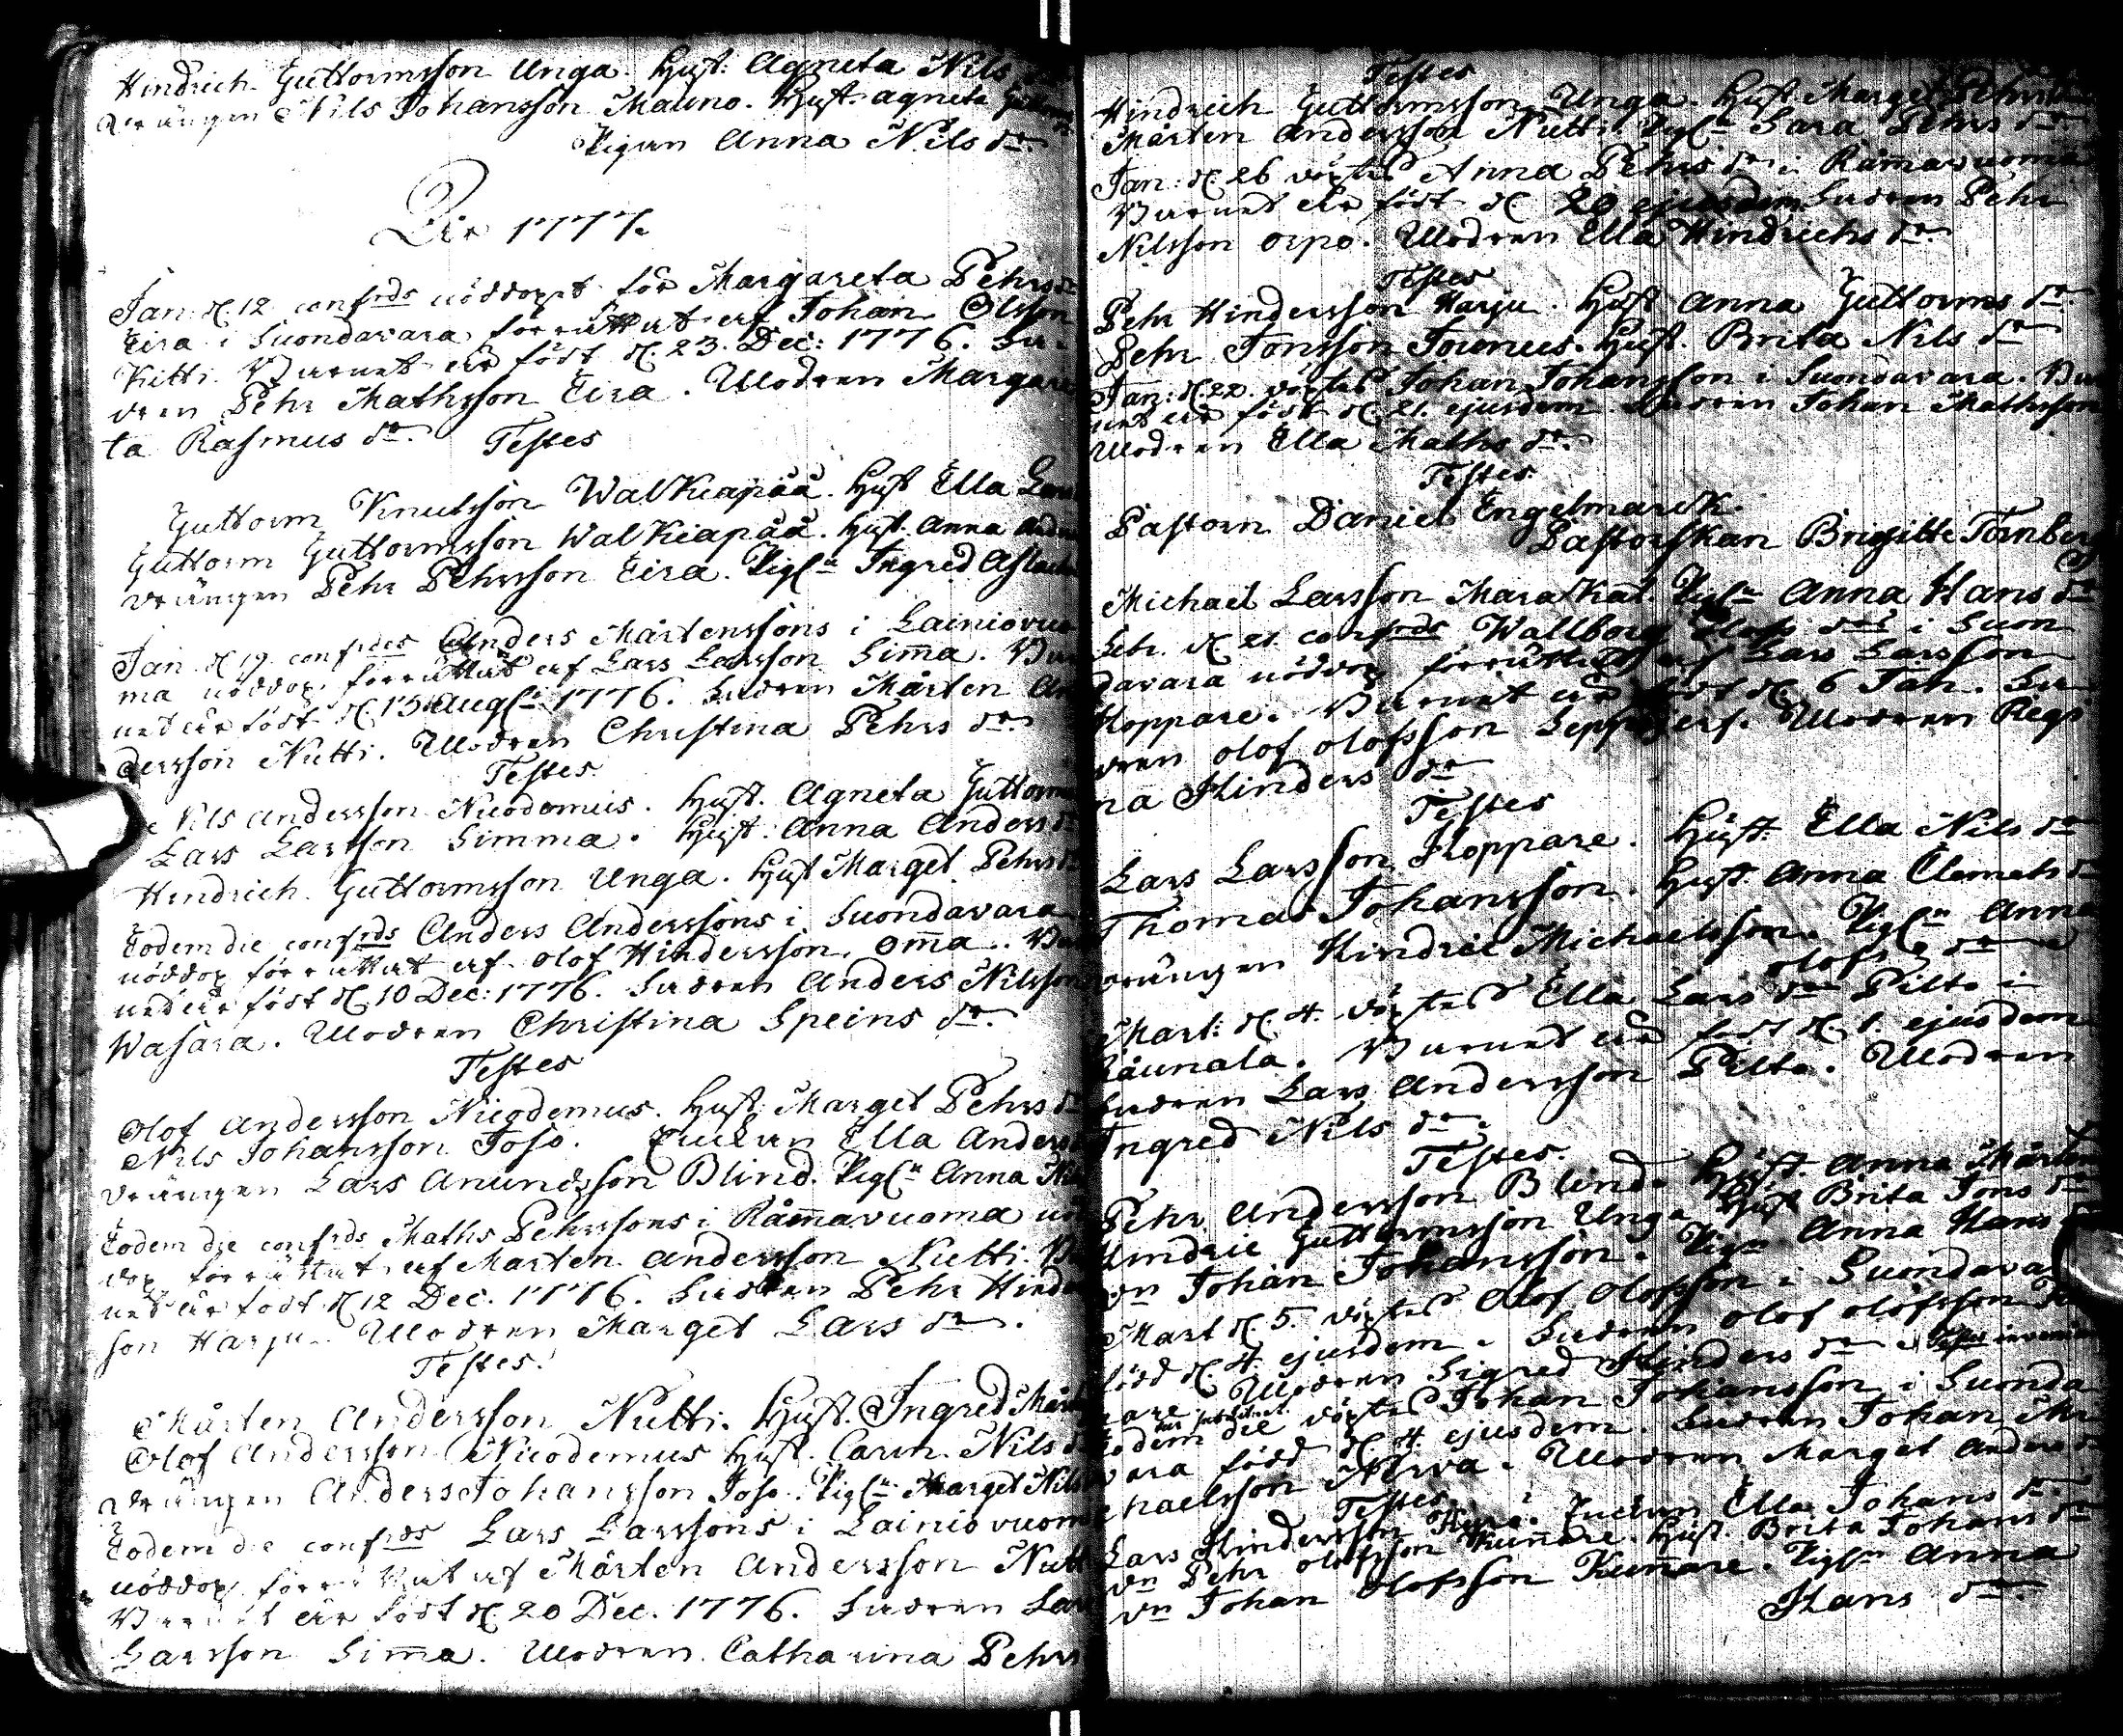 Hindrich Guttormsson Unga. Hust: Agneta Nils
drängen Nils Johansson Mauno. Hust. agneta Guttorms
Pigan Anna Nils dr.
Åhr 1777.
Jan: d. 12 confrds nöddopet för Margareta Pehrs dr
Eira i Suondavara förrättat af Johan Olsson
Kitti. Barnet är födt d. 23. Dec: 1776. Fa-
dren Pehr Mathsson Eira. Modren Margare
ta Rasmus dr.
Testes
Guttorm Knutsson Walkiapää. Hust Ella Lars
Guttorm Guttormsson Walkiapää. Hust. Anna
drängen Pehr Pehrsson Eira. Pigan Ingred Aslachs
Jan d. 19. confrdes Anders Mårtenssons i Lainiovuo
ma nöddop förrättat af Lars Larsson Sim̄a. Bar
net är födt d. 15 Augti 1776. Fadren Mårten An
dersson Nutti. Modren Christina Pehrs dr.
Testes
Nils Andersson Nicodemus. Hust. Agneta Guttorms
Lars Larsson Simma. Hust. Anna Anders dr
Hindrich Guttormsson Unga. Hust Marget Pehrs dr
Eodem die confrds Anders Anderssons i Suondavara
nöddop förrättat af Olof Hindersson Om̄a. Bar
net är födt d. 10 Dec: 1776. Fadren Anders Nilsson
Wasara. Modren Christina Speins dr.
Testes
Olof Andersson Nicodemus. Hust. Marget Pehrs dr
Nils Johansson Joso. Enckan Ella Anders
drängen Lars Anundsson Blind. Pigan Anna Nils
Eodem die confrds Maths Pehrssons i Råm̄avuoma nöd
dop förrättat af Mårten Andersson Nutti. Bar
net är födt d. 12 Dec. 1776. Fadren Pehr Hinders
son Harju. Modren Marget Lars dr.
Testes.
Mårten Andersson Nutti. Hust. Ingred Mårt
Olof Andersson Nicodemus Hust. Carin Nils dr
drängen Anders Johansson Joso. Pigan Marget Nils
Eodem die confrds Lars Larssons i Lainiovuom
nöddop förrättat af Mårten Andersson Nutti
Barnet är födt d. 20 Dec. 1776. Fadren Lars
Larsson Sim̄a. Modren Catharina Pehrs
Testes
Hindrich Guttormsson Unga. Hust Marget Pehrs
Mårten Andersson Nutti. Pigan Sara Pehrs dr.
Jan: d. 26 döptes Anna Pehrs dr i Råm̄avuoma
Barnet är födt d. 20 ejusdem Fadren Pehr
Nilsson Orpo. Modren Ella Hindrichs dr.
Testes
Pehr Hindersson Harju. Hust Anna Guttorms dr.
Pehr Jonsson Jounus. Hust. Brita Nils dr
Jan: d. 22. döptes Johan Johansson i Suondavara. Bar
net är födt d. 21. ejusdem. Fadren Johan Mathsson
Modren Ella Maths dr.
Testes
Pastorn Daniel Engelmarck.
Pastorskan Brigitte Törnberg
Michael Larsson Maraskat Pigan Anna Hans dr
Febr. d. 21. confrds Wallborg Olofs drs i Suon
davara nöddop förrättat af Lars Larsson
Hoppare. Barnet är födt d. 6 Jan. Fa-
dren Olof Olofsson Seppajerf. Modren Regi
na Hinders dr
Testes
Lars Larsson Hoppare. Hust. Ella Nils dr
Thomas Johansson. Hust. Anna Clemets dr
drängen Hindric Michaelsson. Pigan Anna
Olofs dr
Mart: d. 4. döptes Ella Lars dr Pilto i
Råunala. Barnet är födt d. 1. ejusdem
Fadren Lars Andersson Pilto. Modren
Ingred Nils dr.
Testes.
Pehr Andersson Blind. Hust. Anna Mårtens
Hindric Guttormsson Unga Hust Brita Jons dr
dn Johan Johansson. Pigan Anna Hans
Mart d. 5. döptes Olof Olofsson i Suondavara
född d. 4 ejusdem. Fadren Olof Olofsson
Modren Sigred Hinders dr
Eodem die döptes Johan Johansson i Suonda
vara född d. 4. ejusdem. Fadren Johan Mi
chaelsson Niva. Modren Marget Anders dr
Testes.
Lars Hindersson Enckan Ella Johans dr
dn Pehr Olofsson Kum̄are. Hust. Brita Johans dr
dn Johan Olofsson Kum̄are. Pigan Anna
Hans dr.